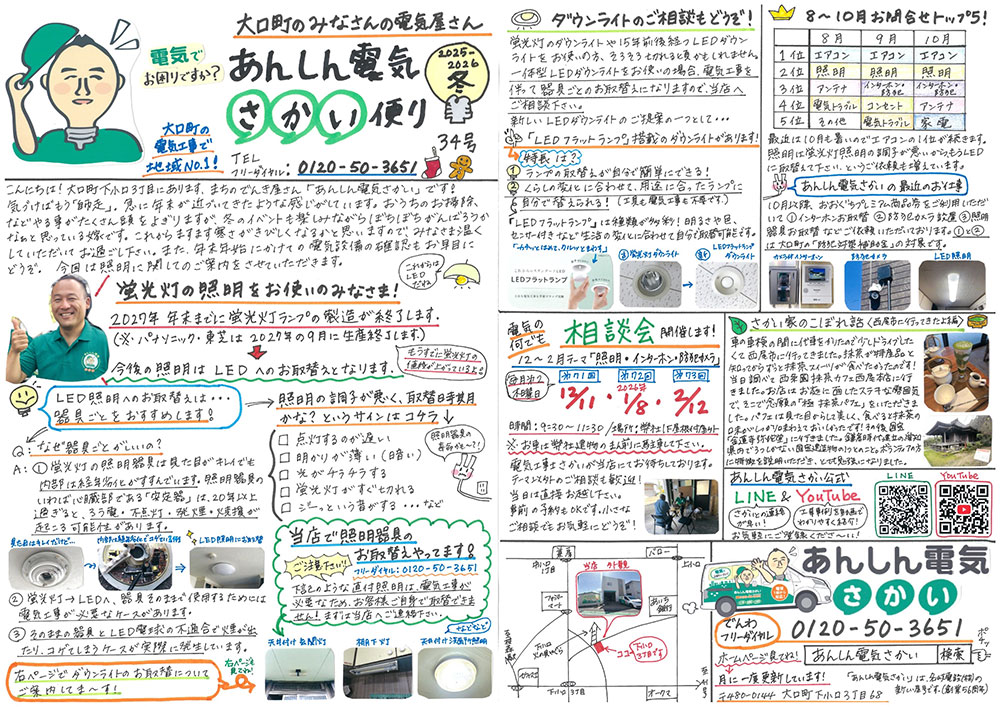 大口町のみなさんの電気屋さん
電気で
お困りですか?
あんしん電気
さかい便り
2025-
2026
冬
34号
大口町の
電気工事で
地域No.1!
TEL
フリーダイヤル: 0120-50-3651
こんにちは!大口町下小口3丁目にあります、まちのでんき屋さん「あんしん電気さかい」です!
気づけばもう「師走」。急に年末が近づいてきたような感じがしています。おうちのお掃除
などやる事がたくさん頭をよぎりますが、冬のイベントも楽しみながらぼちぼちがんばろうか
なぁと思っている嫁です。これからますます寒さがきびしくなるかと思いますので、みなさまも温く
していただいてお過ごし下さい。また、年末年始にかけての電気設備の確認もお早目に
どうぞ。今回は照明に関してのご案内をさせていただきます。
これからは
LED
だね
蛍光灯の照明をお使いのみなさま!
2027年 年末までに蛍光灯ランプの製造が終了します。
(※パナソニック・東芝は2027年の9月に生産終了します。)
今後の照明は LED へのお取替えとなります。
もうすでに蛍光灯の
価格が上がっているよ!
LED照明へのお取替えは・・・
器具ごとをおすすめします!
Q: なぜ器具ごとがいいの?
A: ①蛍光灯の照明器具は見た目がキレイでも
内部は経年劣化がすすんでいます。照明器具の
いわば心臓部である「安定器」は、20年以上
過ぎると、ろう電・不点灯・発煙・火災損が
起こる可能性があります。
見た目はキレイだけど…
LED照明にお取替
②蛍光灯→LEDへ、器具そのままで使用するためには
電気工事が必要なケースがあります。
③そのままの器具とLED電球の不適合で煙が出
たり、コゲてしまうケースが実際に発生しています。
右ページでダウンライトのお取替えについて
ご案内してま〜す!
右ページも
見てね!
照明の調子が悪く、取替目安時期
かな?というサインはコチラ
□ 点灯するのが遅い
□ 明かりが薄い(暗い)
□ 光がチラチラする
□ 蛍光灯がすぐ切れる
□ ジーっという音がする・・・など
照明器具の
寿命かも〜?!
当店で照明器具の
お取替えやってます!
ご注意下さい!!
フリーダイヤル:0120-50-3651
下記のような直付照明は、電気工事が
必要なため、お客様ご自身で取替できま
せん!まずは当店へご連絡下さい。
などなど
天井付け玄関灯
軒下灯
天井付け洋風灯照明
ダウンライトのご相談もどうぞ!
蛍光灯のダウンライトや15年前後経つLEDダウン
ライトをお使いの方、そろそろ切れると臭かもしれません。
一体型LEDダウンライトをお使いの場合、電気工事を
伴って器具ごとのお取替えになりますので、当店へ
ご相談下さい。
新しいLEDダウンライトのご提案の一つとして・・・
「LEDフラットランプ」搭載のダウンライトがあります!
特長は?
① ランプの取替えが自分で簡単にできる!
② くらしの変化に合わせて、用途に合ったランプに
自分で替えられる!(工具も電気工事も不要です)
「LEDフラットランプ」は種類が多彩!明るさや色、
センサー付きなど生活の変化に合わせて自分で取替可能です。
「カチッとはめて、クルッとまわす」
LEDフラットランプ
旧 蛍光灯ダウンライト
新 LEDフラットランプ
ダウンライト
8〜10月お問合せトップ5!
8月 9月 10月
1位 エアコン エアコン エアコン
2位 照明 照明 照明
3位 アンテナ インターホン・防犯 インターホン・防犯
4位 電気トラブル コンセント アンテナ
5位 その他 電気トラブル 家電
最近は10月も暑いのでエアコンの1位が続きます。
照明は蛍光灯照明の調子が悪いから、もうLED
に取替えて下さい、というご依頼も増えています。
あんしん電気さかいの最近のお仕事
10月以降、おおぐちプレミアム商品券をご利用いただ
いて ①インターホンお取替 ②防犯カメラ設置 ③照明
器具お取替などご依頼いただいております。(①と②
は大口町の「防犯対策補助金」の対象です。
カメラ付インターホン
防犯カメラ
LED照明
電気の
何でも 相談会 開催します!
12〜2月テーマ「照明・インターホン・防犯カメラ」
毎月第2
木曜日
第71回
12/11
第72回
2026年
1/8
第73回
2/12
時間:9:30〜11:30 場所:弊社1F屋根付ガレージ
※お車は弊社建物の真前に駐車して下さい。
電気工事士さかいが当店にてお待ちしております。
テーマ以外のご相談も歓迎!
当日は直接お越し下さい。
事前の予約もOKです。小さな
ご相談でもお気軽にどうぞ!
さかい家のこぼれ話<西尾市に行ってきたよ編>
車の車検の間に代車をかりたので少しドライブしたく
て西尾市に行ってきました。抹茶が特産品と
知ってからずっと抹茶スイーツが食べたかったのです!
当日調べて西条園抹茶カフェ西尾本店に行
きました。お店はお庭に面したステキな雰囲気
で、そこで念願の「極 抹茶パフェ」をいただきま
した。パフェは見た目からして美しく、食べると抹茶の
味がしっかり味わえておいしかったです!その後、国宝
「金蓮寺弥陀堂」に行きました。鎌倉時代建立の愛知
県のでうつくしい国宝建造物のひとつとのこと。ボランティアの方
に特徴を説明いただき、とても勉強になりました。
あんしん電気さかい公式
LINE & YouTube
さかいとの連絡
が早い!
工事事例を動画で
わかりやすく紹介!
お気軽にご登録ください〜!
LINE
YouTube
当店 外観
ココ
下小口
3丁目です!
バロー
あいち
銀行
ファミリー
マート
下小口
3丁目
オークマ
あんしん電気
さかい
でんわ
フリーダイヤル
0120-50-3651
ホームページ見てね!
あんしん電気さかい 検索
ポチッ
月に一度更新しています!
〒480-0144 大口町下小口3丁目68